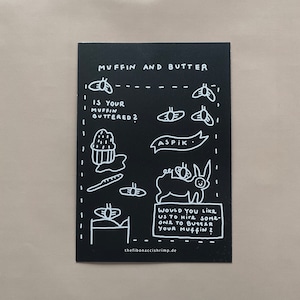 MUFFIN AND BUTTER
IS YOUR
MUFFIN
BUTTERED?
ASPIK
WOULD YOU LIKE
US TO HIRE SOME-
ONE TO BUTTER
YOUR MUFFIN?
thefibonaccishrimp.de